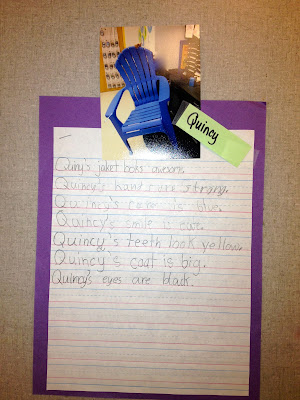 Quincy
Quiny's jaket looks awsome.
Quincy's hands are strong.
Quincy's care is blue.
Quincy's smile is cute.
Quincy's teeth look yellow.
Quincy's coat is big.
Quincy's eyes are black.